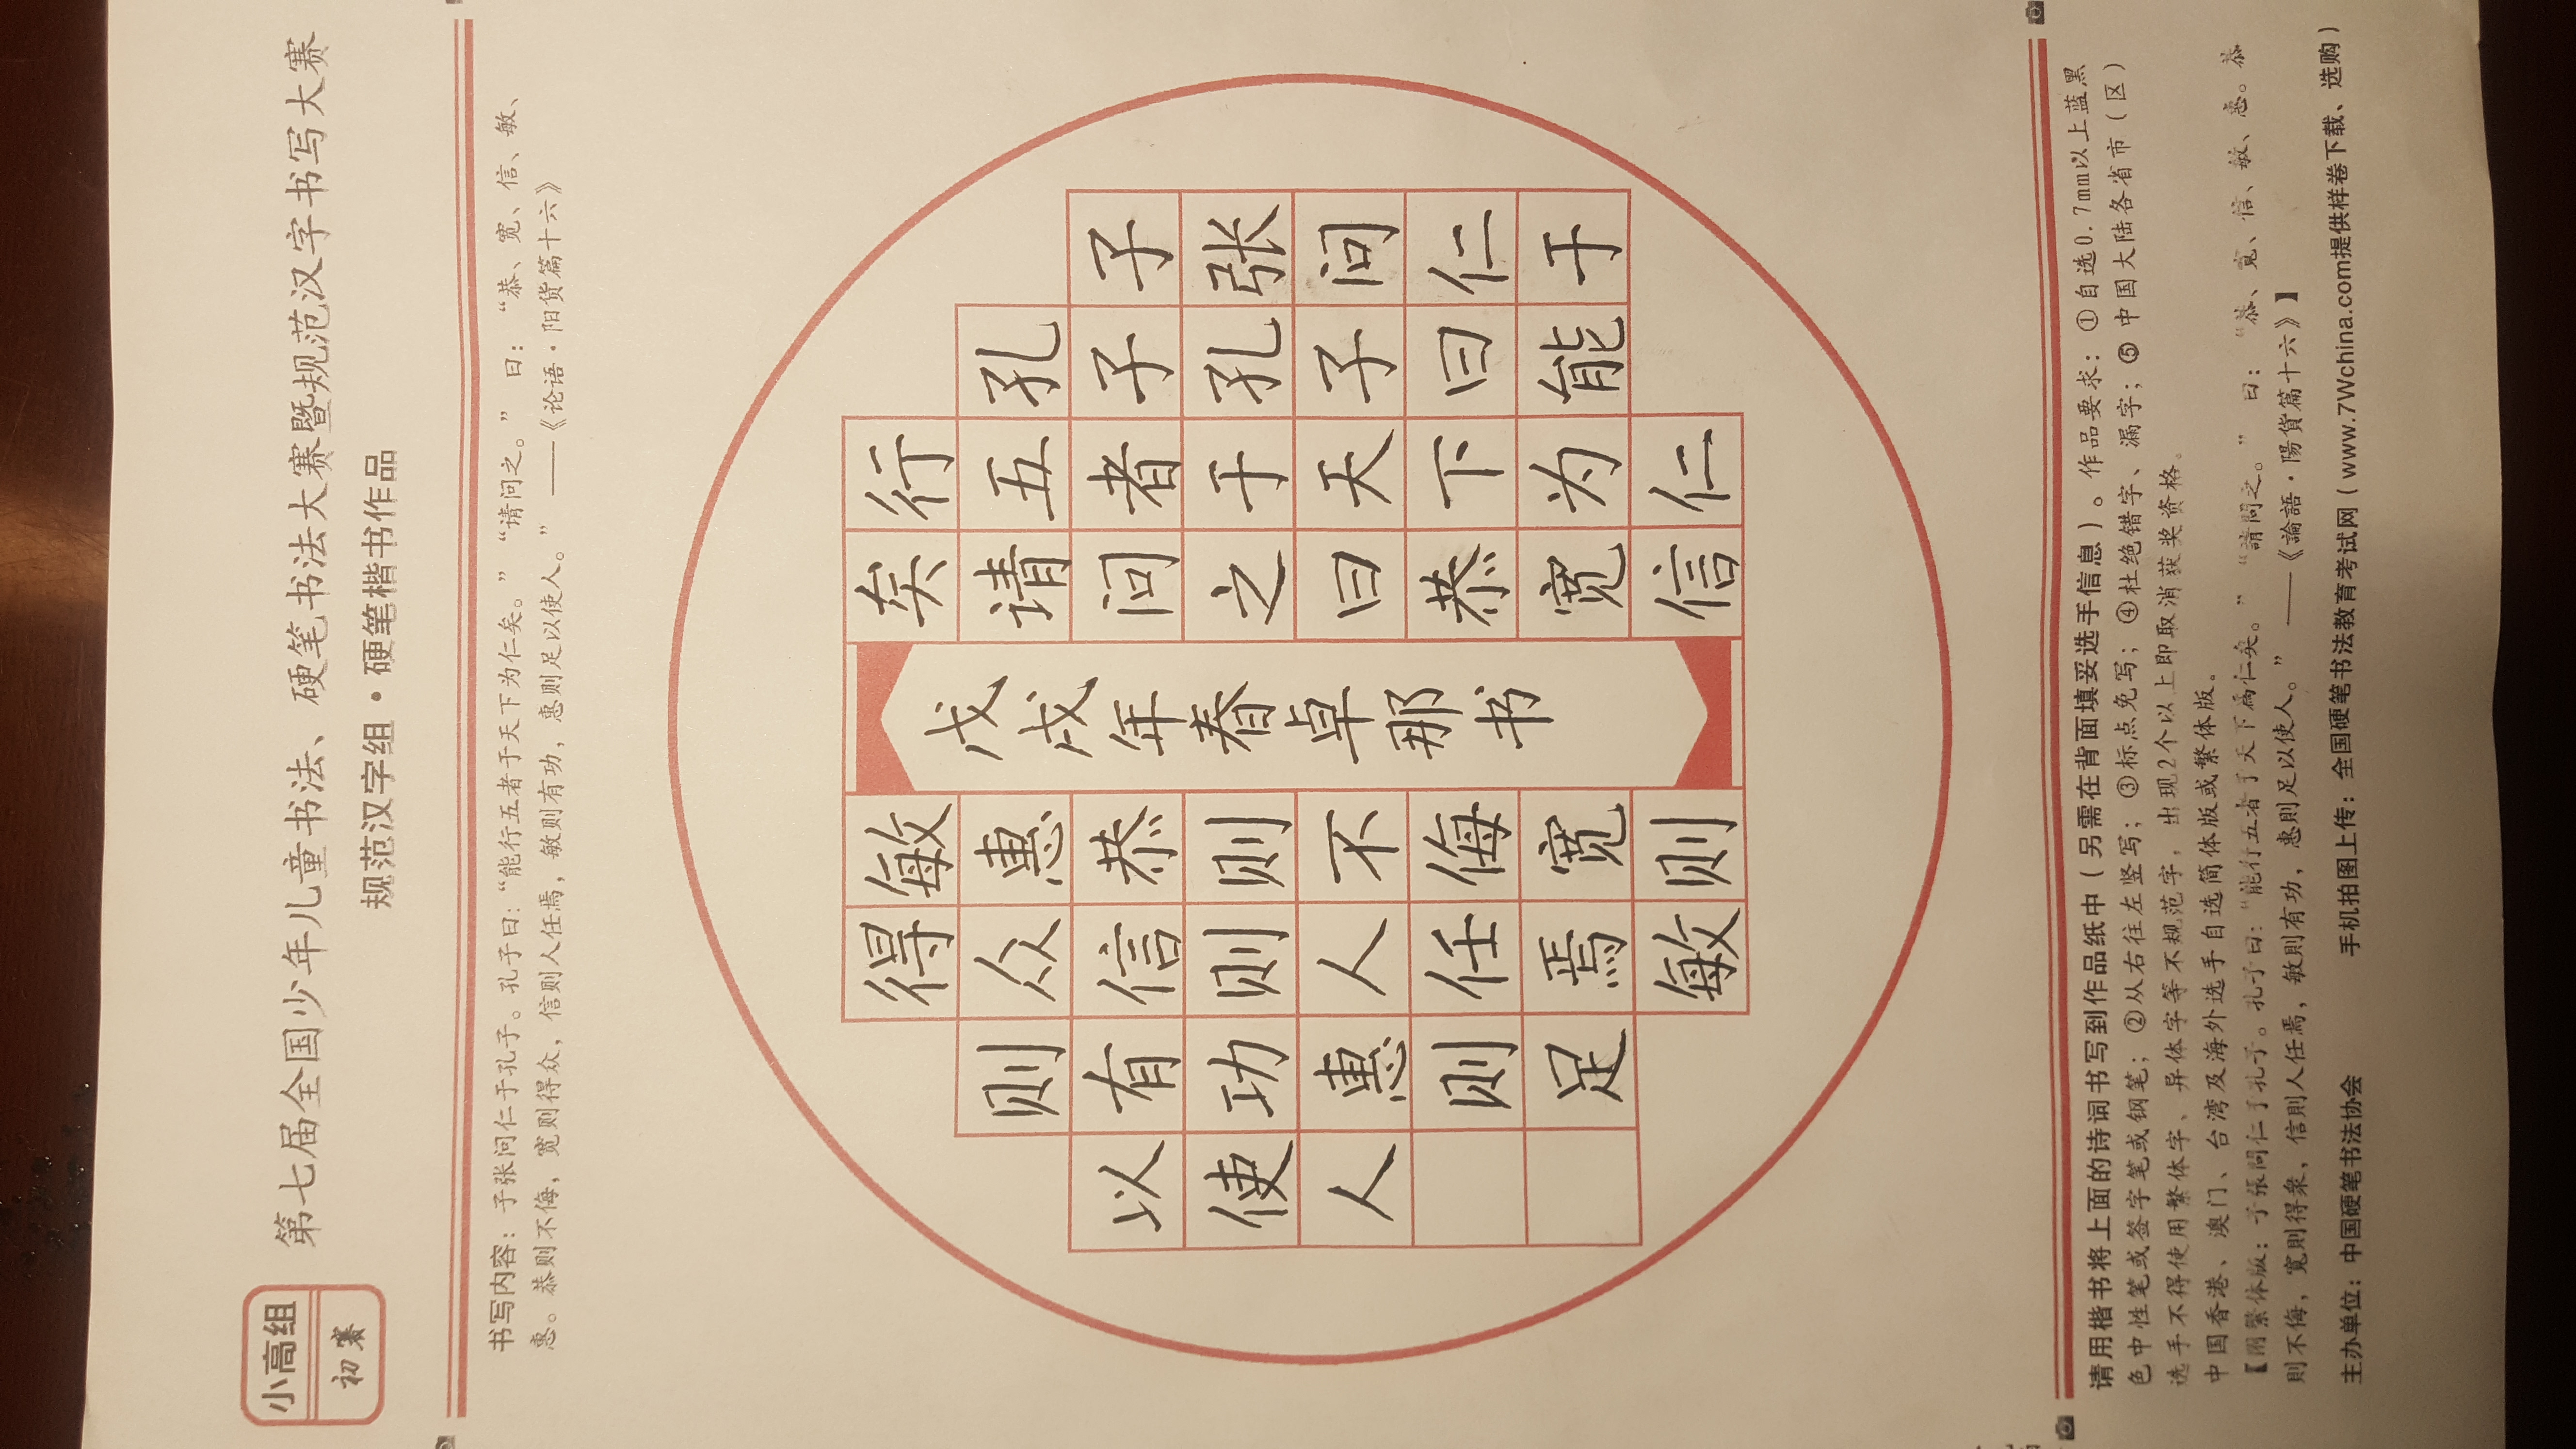 小高组
初赛
第七届全国少年儿童书法、硬笔书法大赛暨规范汉字书写大赛
规范汉字组·硬笔楷书作品
书写内容：子张问仁于孔子。孔子曰：“能行五者于天下为仁矣。”“请问之。”曰：“恭、宽、信、敏、
惠。恭则不侮，宽则得众，信则人任焉，敏则有功，惠则足以使人。”——《论语·阳货篇十六》
子张问仁于
孔子孔子曰能
行五者于天下为仁
矣请问之曰恭宽信
戊戌年春卓那书
敏惠恭则不侮宽则
得众信则人任焉敏
则有功惠则足
以使人
请用楷书将上面的诗词书写到作品纸中（另需在背面填妥选手信息）。作品要求：①自选0.7mm以上蓝黑
色中性笔或签字笔或钢笔；②从右往左竖写；③标点免写；④杜绝错字、漏字；⑤中国大陆各省市（区）
选手不得使用繁体字、异体字等不规范字，出现2个以上即取消获奖资格。
中国香港、澳门、台湾及海外选手自选简体版或繁体版。
【附繁体版：子張問仁于孔子。孔子曰：“能行五者于天下為仁矣。”“請問之。”曰：“恭、寬、信、敏、惠。恭
則不侮，寬則得衆，信則人任焉，敏則有功，惠則足以使人。”——《論語·陽貨篇十六》】
主办单位：中国硬笔书法协会 手机拍图上传：全国硬笔书法教育考试网（www.7Wchina.com提供样卷下载、选购）